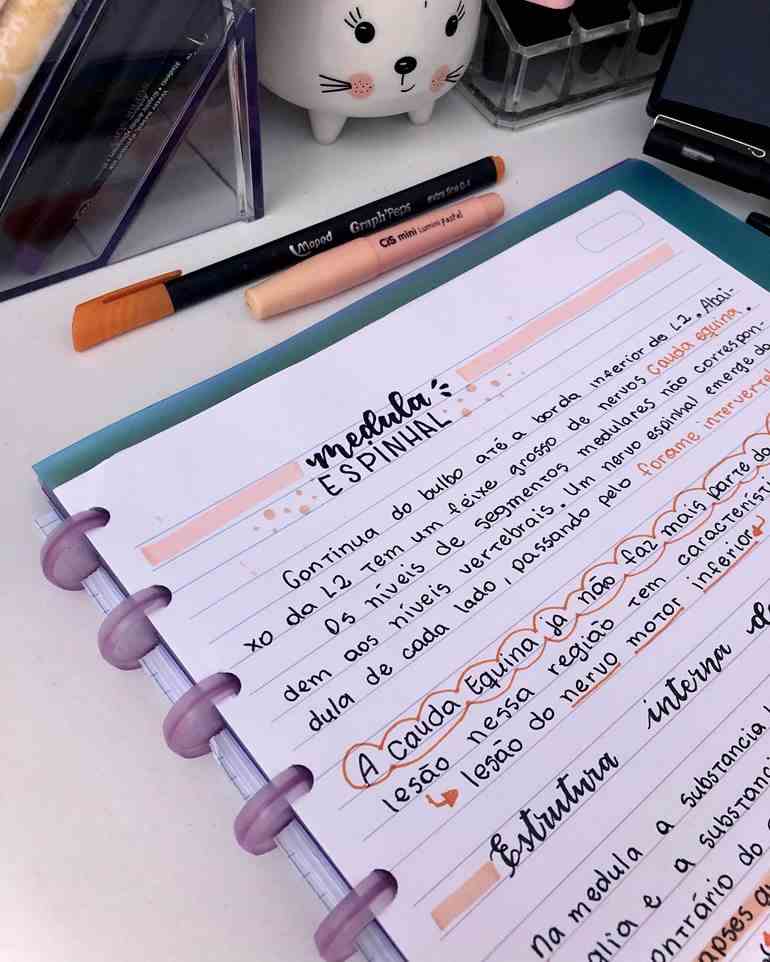 Maped Graph'Peps extra fine 0.4
CiS mini Lumini Pastel
medula
ESPINHAL
Continua do bulbo até a borda inferior de L2. Abai-
xo da L2 tem um feixe grosso de nervos cauda equina.
Os níveis de segmentos medulares não correspon-
dem aos níveis vertebrais. Um nervo espinhal emerge da
dula de cada lado, passando pelo forame interverte
A Cauda Equina já não faz mais parte da
lesão nessa região tem característi
↳ lesão do nervo motor inferior
Estrutura interna d
Na medula a substância
alia e a substânc
ontrário do
apses qu